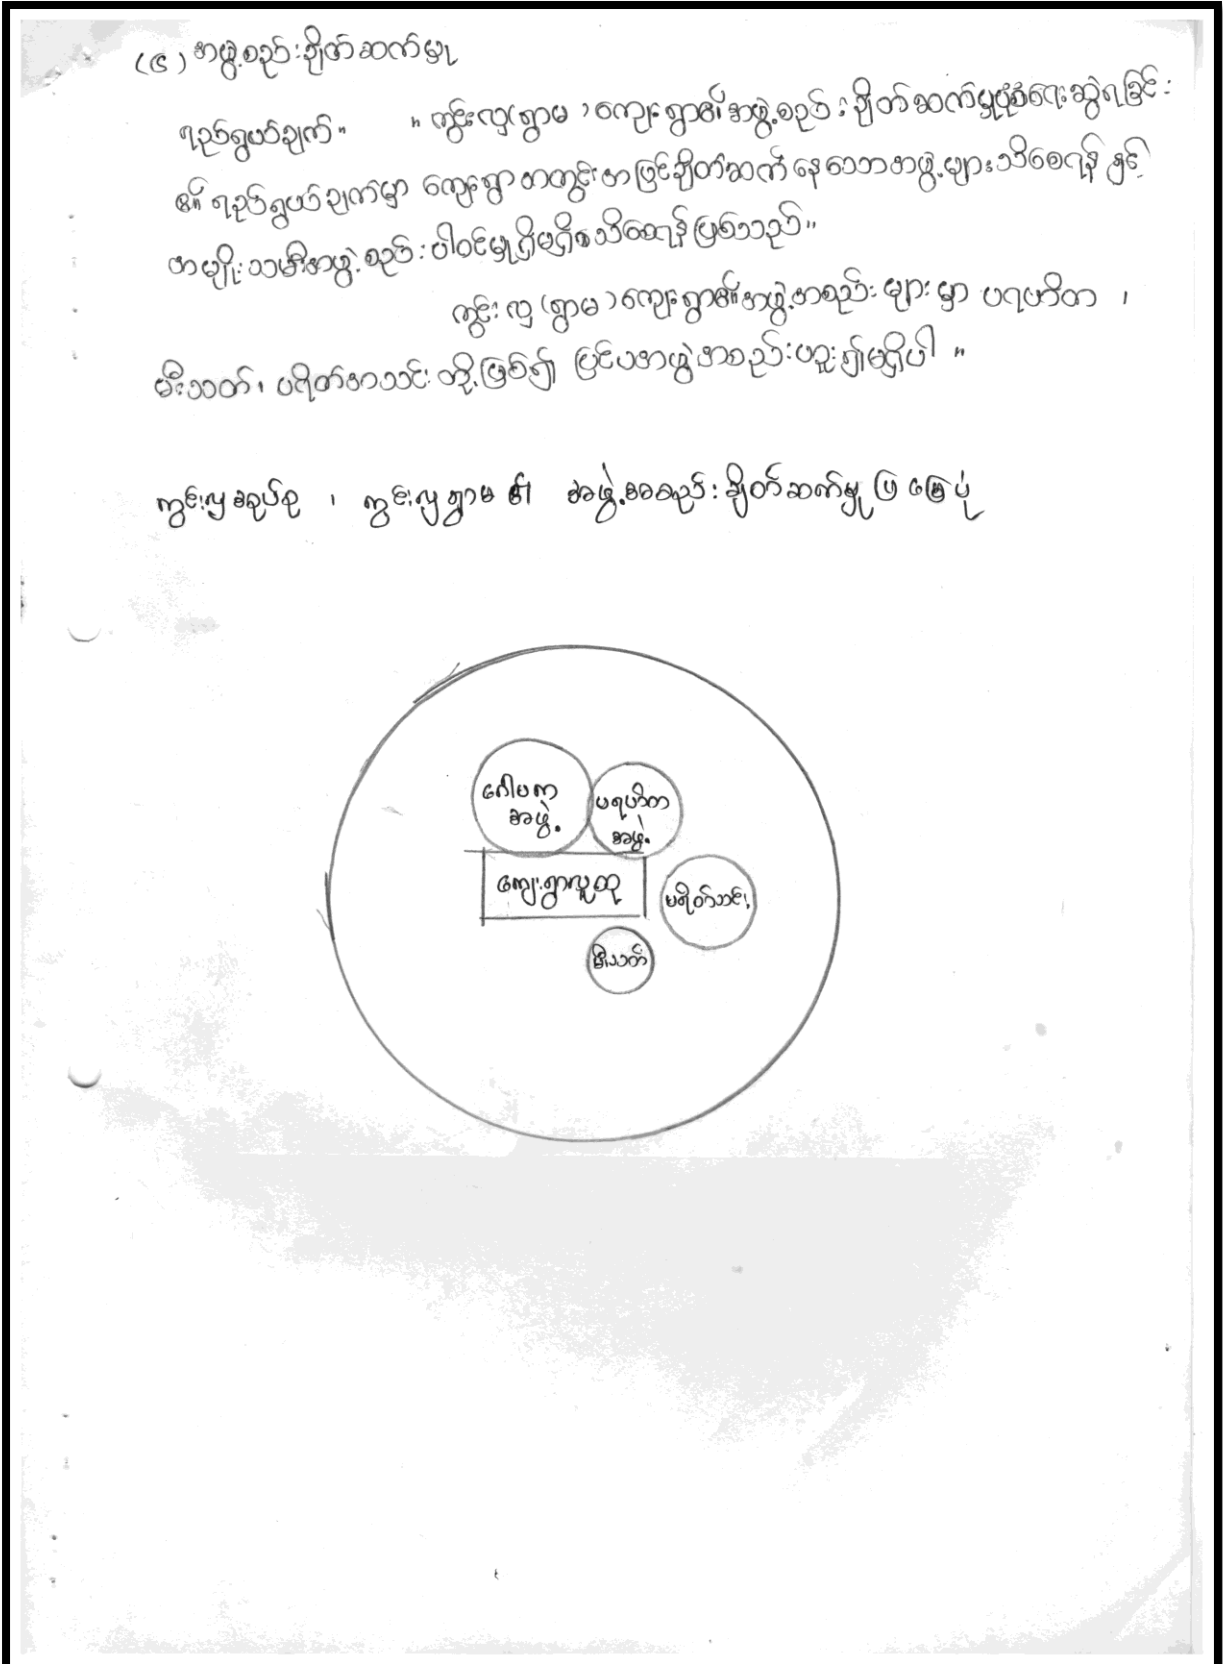 (၆) အဖွဲ့စည်းချိတ်ဆက်မှု
ရည်ရွယ်ချက်။ ။ ကွင်းလှ(ရွာမ)ကျေးရွာ၏အဖွဲ့စည်းချိတ်ဆက်မှုပုံစံရေးဆွဲရခြင်း
၏ ရည်ရွယ်ချက်မှာ ကျေးရွာအတွင်းအပြင်ချိတ်ဆက်နေသောအဖွဲ့များသိစေရန်နှင့်
အမျိုးသမီးအဖွဲ့စည်းပါဝင်မှုရှိမရှိစေသိစေရန်ဖြစ်သည်။
ကွင်းလှ(ရွာမ)ကျေးရွာ၏အဖွဲ့အစည်းများမှာ ပရဟိတ ၊
မီးသတ်၊ ပရိတ်အသင်းတို့ဖြစ်၍ ပြင်ပအဖွဲ့အစည်းဟူ၍မရှိပါ ။
ကွင်းလှအုပ်စု ၊ ကွင်းလှရွာမ ၏ အဖွဲ့အစည်းချိတ်ဆက်မှုပြ မြေပုံ
ဂေါပက
အဖွဲ့
ပရဟိတ
အဖွဲ့
ကျေးရွာလူထု
ပရိတ်သင်း
မီးသတ်